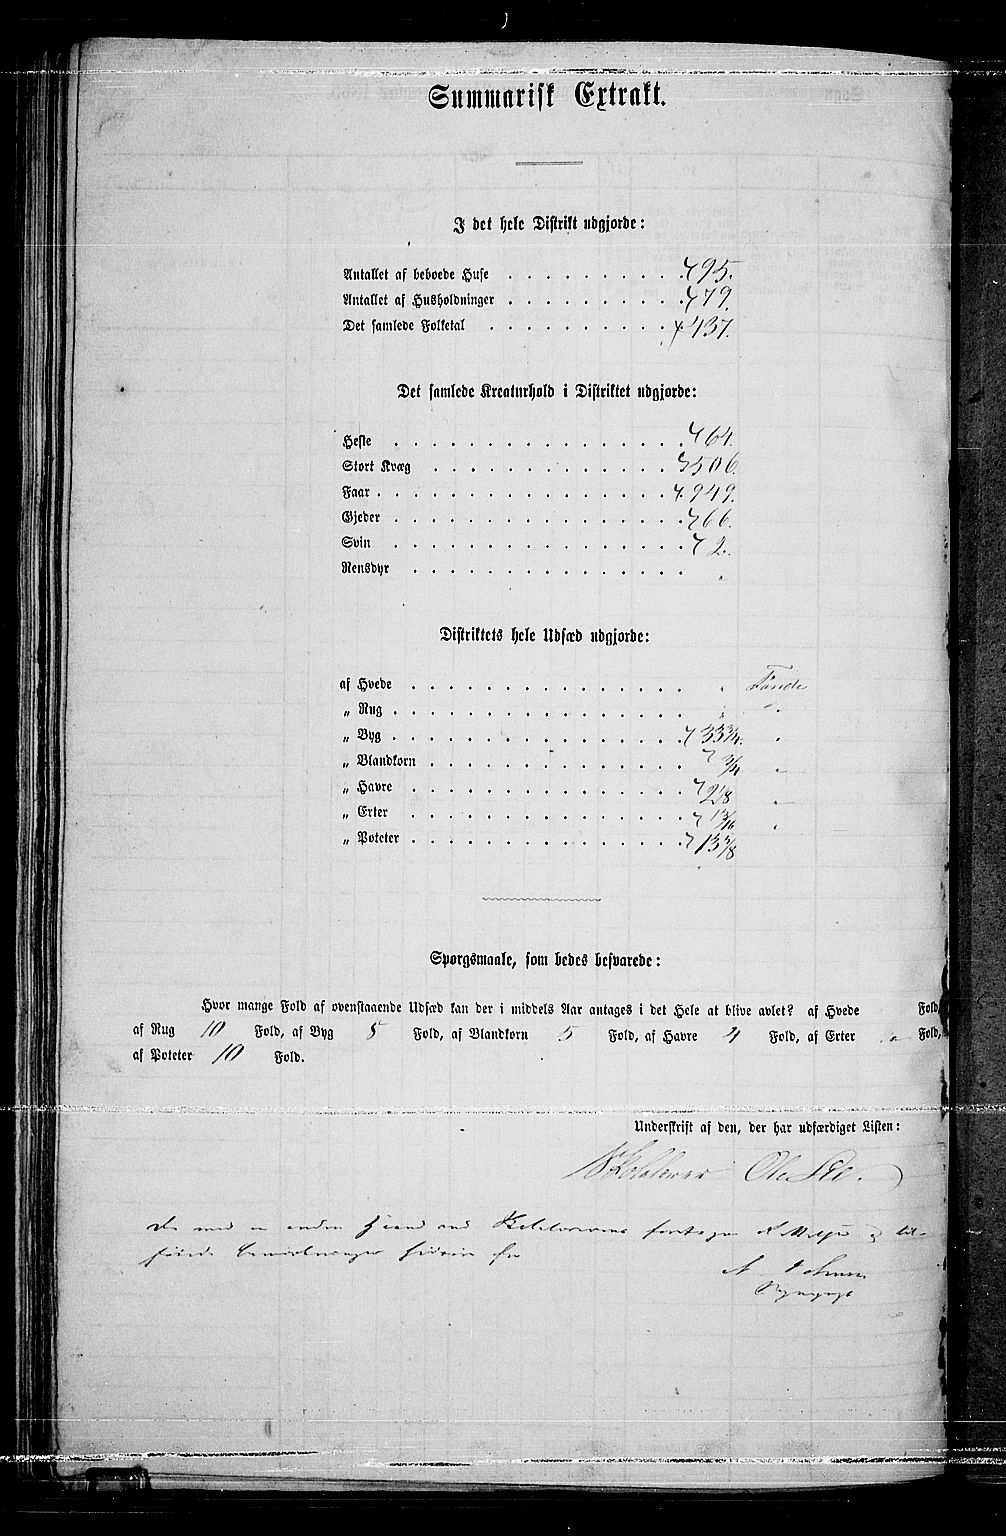 Summarisk Extrakt.
I det hele Distrikt udgjorde:
Antallet af beboede Huse . . . . . . . . . . 95.
Antallet af Husholdninger . . . . . . . . . . 79.
Det samlede Folketal . . . . . . . . . . 437.
Det samlede Kreaturhold i Distriktet udgjorde:
Heste . . . . . . . . . . . . . . . . 64.
Stort Kvæg . . . . . . . . . . . . . . 506.
Faar . . . . . . . . . . . . . . . . . 949.
Gjeder . . . . . . . . . . . . . . . . 66.
Svin . . . . . . . . . . . . . . . . 2.
Rensdyr . . . . . . . . . . . . . . . "
Distriktets hele Udsæd udgjorde:
af Hvede . . . . . . . . . . . . . . . " Tønde
„ Rug . . . . . . . . . . . . . . . . " "
„ Byg . . . . . . . . . . . . . . . . 33 3/4. "
„ Blandkorn . . . . . . . . . . . . . . 3/4 "
„ Havre . . . . . . . . . . . . . . . "
„ Erter . . . . . . . . . . . . . . . 13/16 "
„ Poteter . . . . . . . . . . . . . . 135 5/8
Spørgsmaale, som bedes besvarede:
Hvor mange Fold af ovenstaaende Udsæd kan der i middels Aar antages i det Hele at blive avlet? af Hvede Fold,
af Rug 10 Fold, af Byg 5 Fold, af Blandkorn 5 Fold, af Havre 4 Fold, af Erter " Fold,
af Poteter 10 Fold.
Underskrift af den, der har udfærdiget Listen:
Ole
De med en anden Haand end